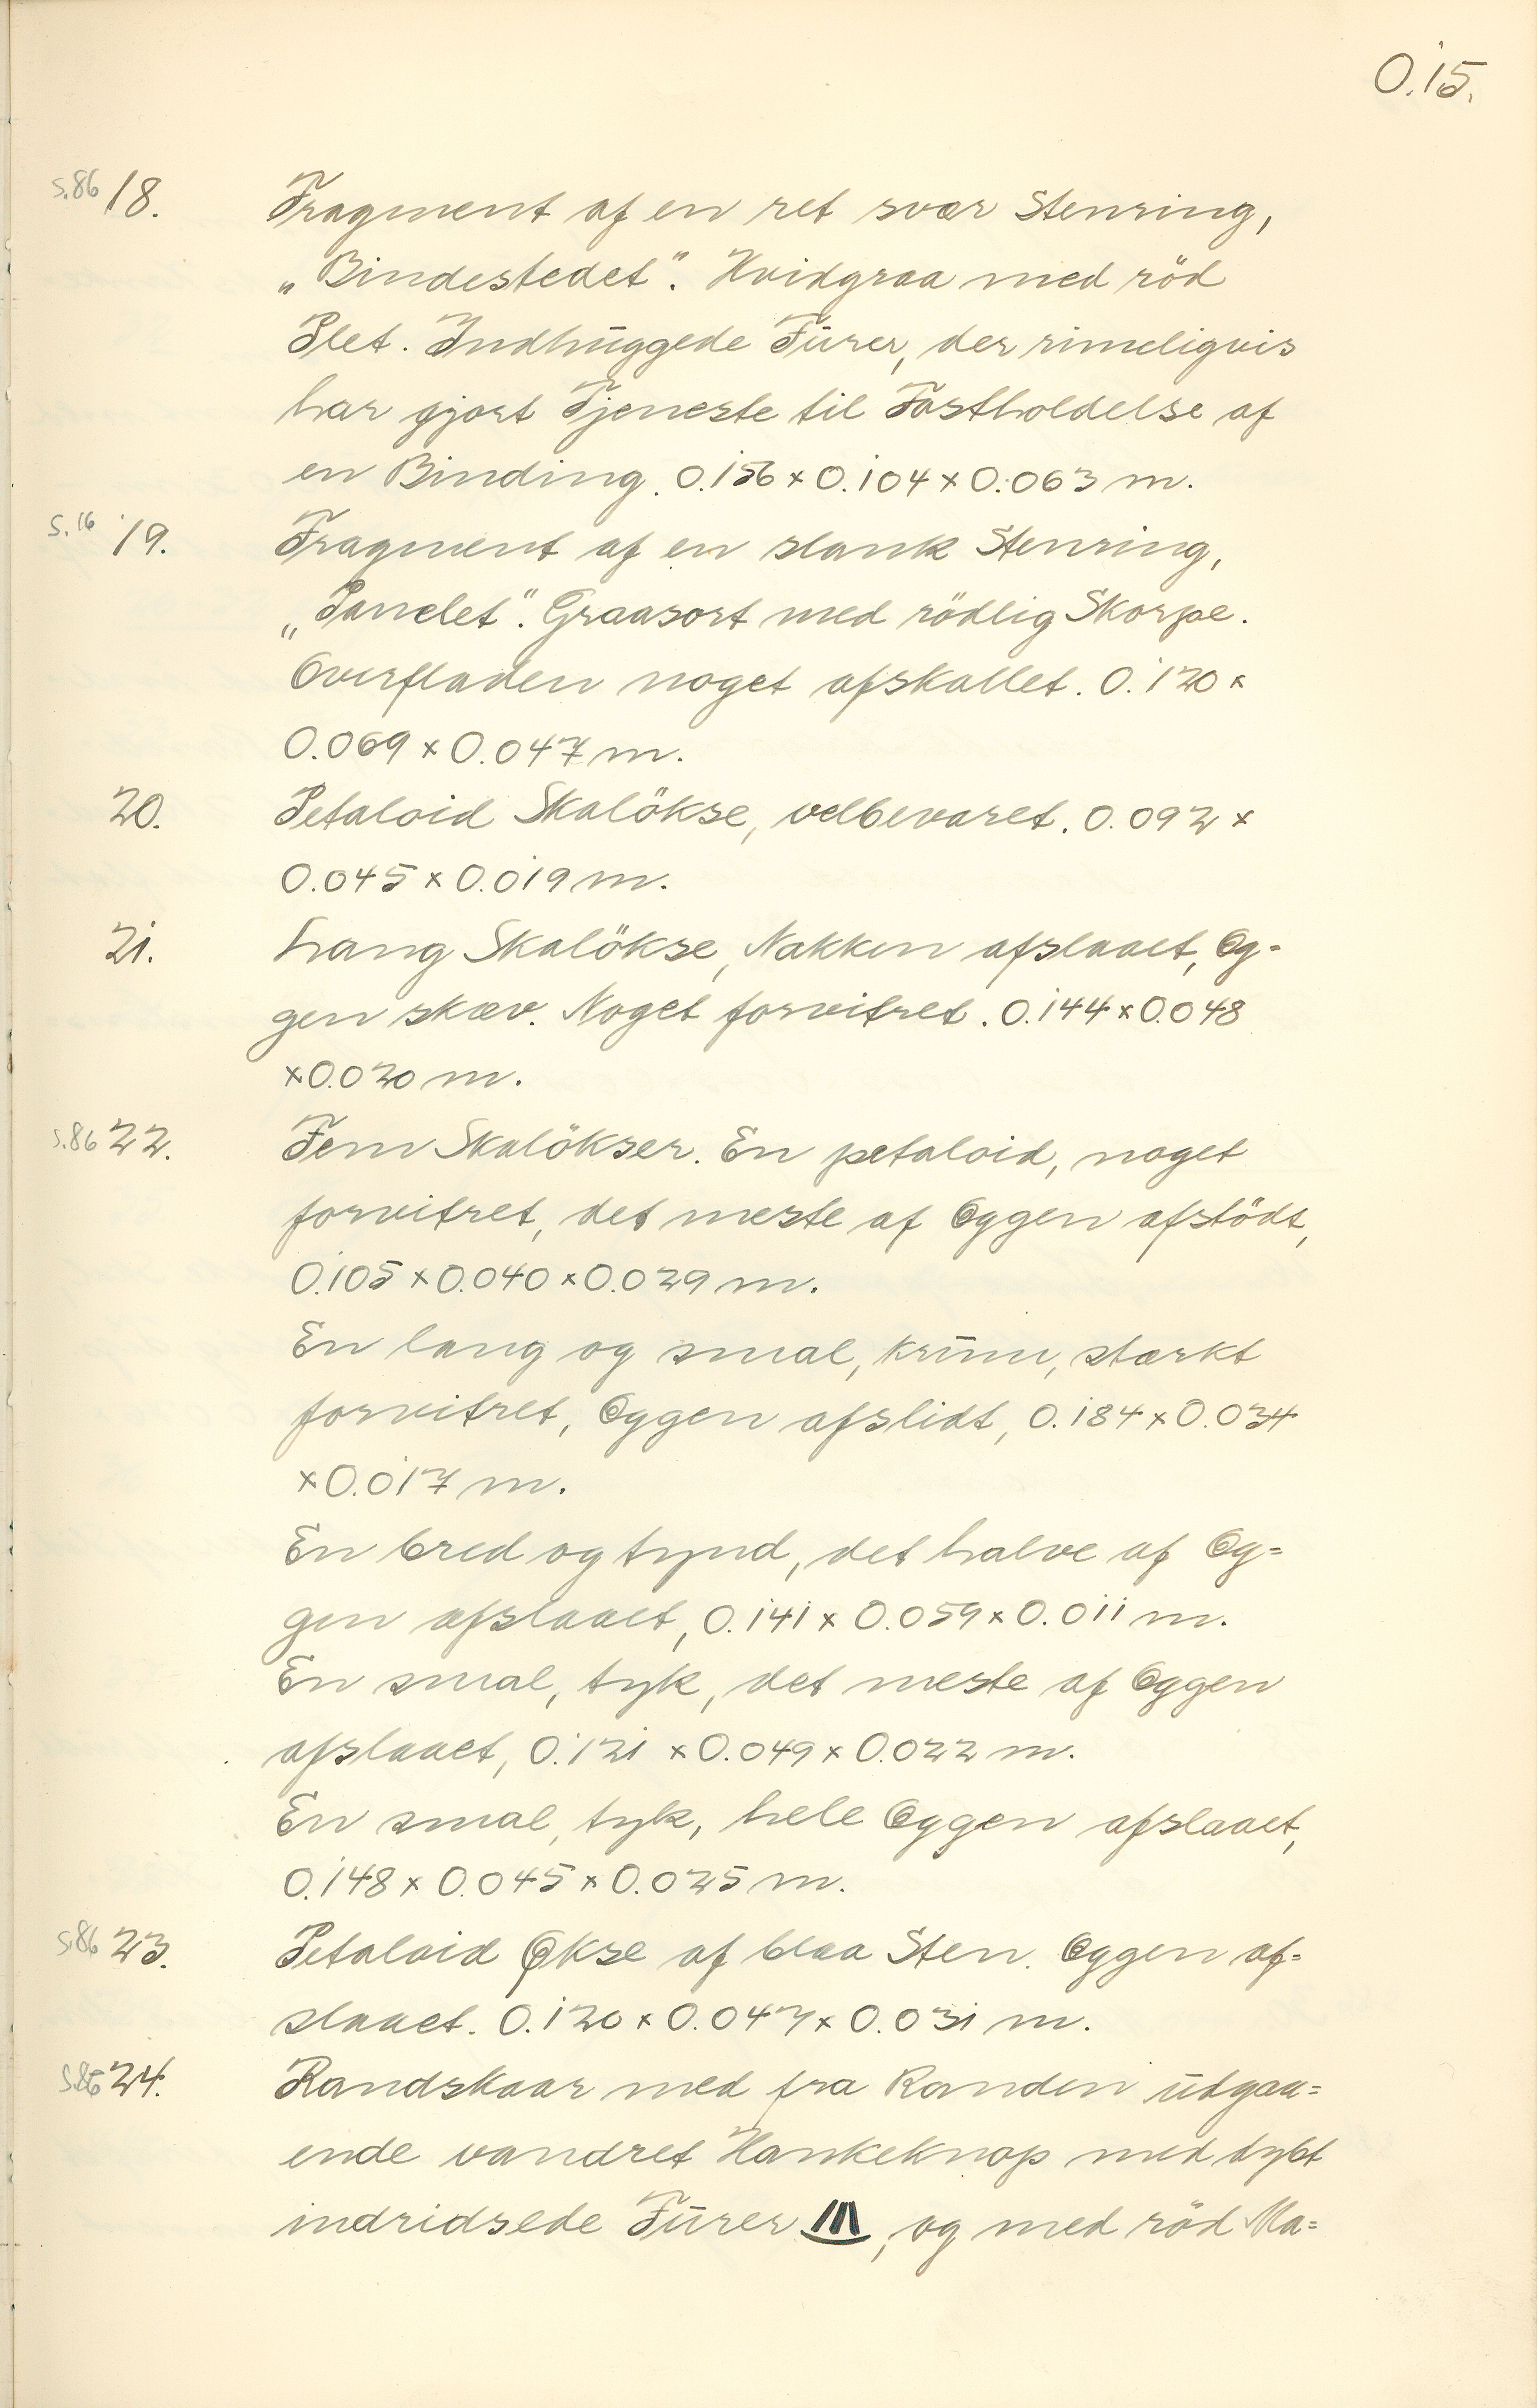 O.15.
S.86 18. Fragment af en ret svær Stenring,
„Bindestedet". Hvidgraa med röd
Plet. Indhūggede Fūrer, der rimeligvis
har gjort Tjeneste til Fastholdelse af
en Binding. 0.156 x 0.104 x 0.063 m.
S.16 19. Fragment af en slank Stenring,
„Panelet". Graasort med rödlig Skorpe.
Overfladen noget afskallet. 0.120 x
0.069 x 0.047 m.
20. Petaloid Skalökse, velbevaret. 0.092 x
0.045 x 0.019 m.
21. Lang Skalökse, Nakken afslaaet, Eg=
gen skæv. Noget forvitret. 0.144 x 0.048
x 0.020 m.
S.86 22. Fem Skalökser. En petaloid, noget
forvitret, det meste af Eggen afstödt,
0.105 x 0.040 x 0.029 m.
En lang og smal, krūm, stærkt
forvitret, Eggen afslidt, 0.184 x 0.034
x 0.017 m.
En bred og tynd, det halve af Eg=
gen afslaaet, 0.141 x 0.059 x 0.011 m.
En smal, tyk, det meste af Eggen
afslaaet, 0.121 x 0.049 x 0.022 m.
En smal, tyk, hele Eggen afslaaet,
0.148 x 0.045 x 0.025 m.
S.86 23. Petaloid Økse af blaa Sten. Eggen af=
slaaet. 0.120 x 0.047 x 0.031 m.
S.86 24. Randskaar med fra Randen ūdgaa=
ende vandret Hankeknop med dybt
indridsede Fūrer , og med röd Ma=